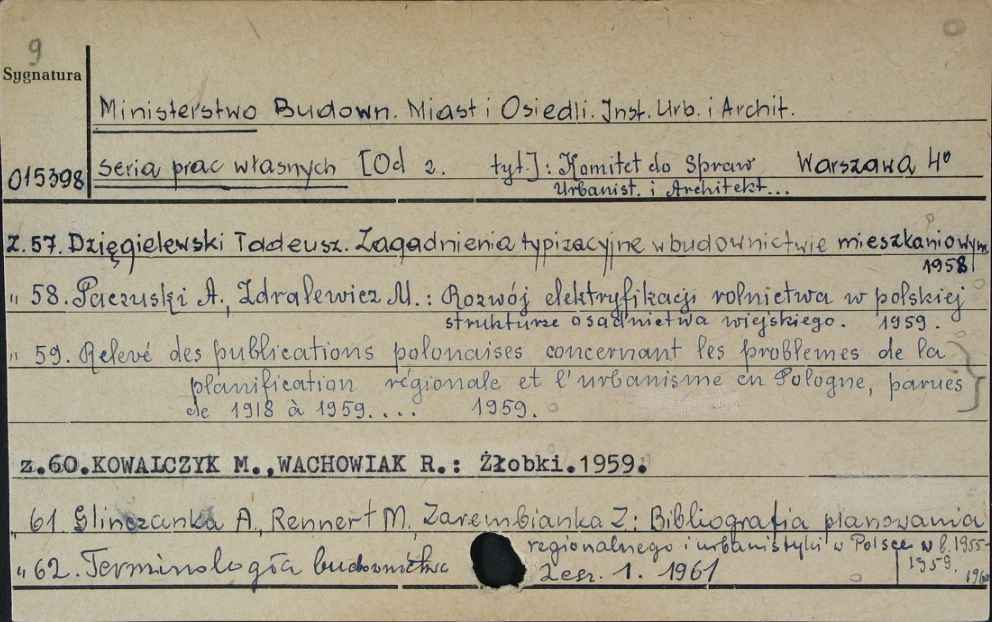 9
Sygnatura
Ministerstwo Budown. Miast i Osiedli. Inst. Urb. i Archit.
015398 Seria prac własnych [Od z. tyt.]: Komitet do Spraw Warszawa 4°
Urbanist. i Architekt...
Z. 57. Dzięgielewski Tadeusz. Zagadnienia typizacyjne w budownictwie mieszkaniowym
1958
" 58. Paczuski A., Zdralewicz M.: Rozwój elektryfikacji rolnictwa w polskiej
strukturze osadnictwa wiejskiego. 1959.
" 59. Relevé des publications polonaises concernant les problemes de la
planification régionale et l'urbanisme en Pologne, parues
de 1918 à 1959.... 1959.
z.60.KOWALCZYK M.,WACHOWIAK R.: Żłobki.1959.
" 61 Glinczanka A., Rennert M, Zarembianka Z: Bibliografia planowania
regionalnego i urbanistyki w Polsce w l. 1955-
1959. 1960
" 62. Terminologia budownictwa Zesz. 1. 1961